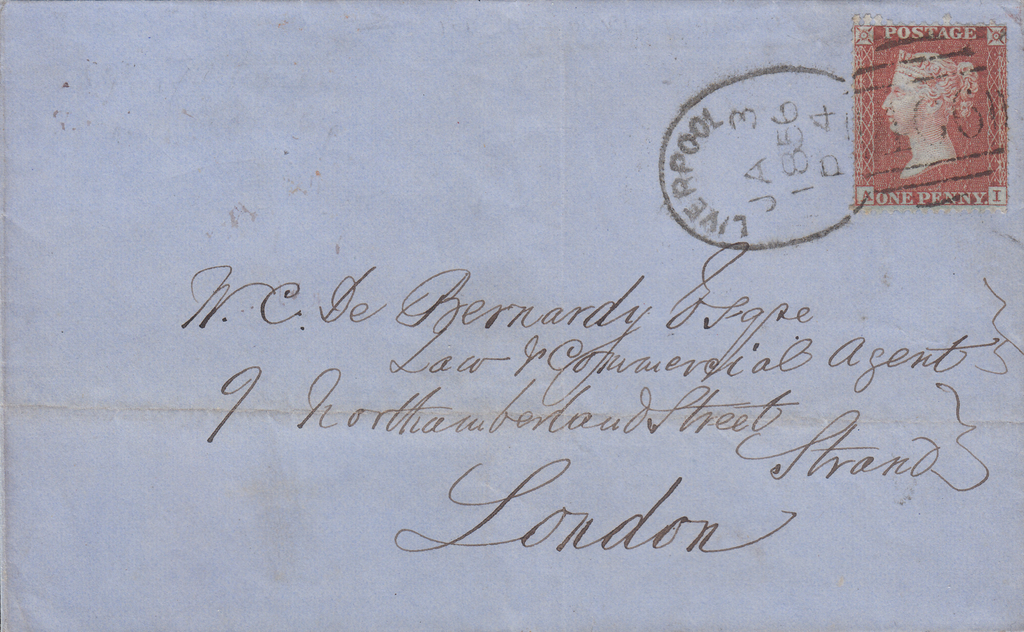 POSTAGE
ONE PENNY
A I
LIVERPOOL
JA 3
1856
P 4
W. C. De Bernardy Esqre
Law & Commercial Agent
9 Northamberland Street
Strand
London